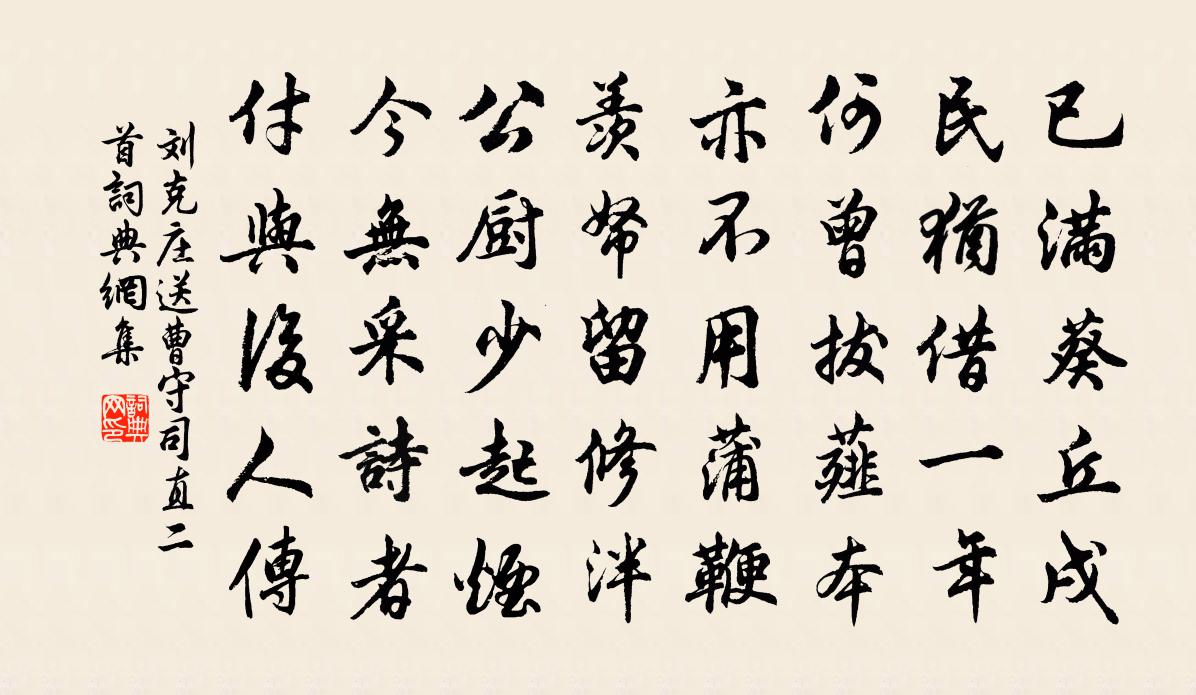 已滿葵丘戍
民猶借一年
何曾拔薤本
亦不用蒲鞭
羨帑留修泮
公厨少起煙
今無采詩者
付與後人傳
刘克庄送曹守司直二
首詞典網集
詞典
网印